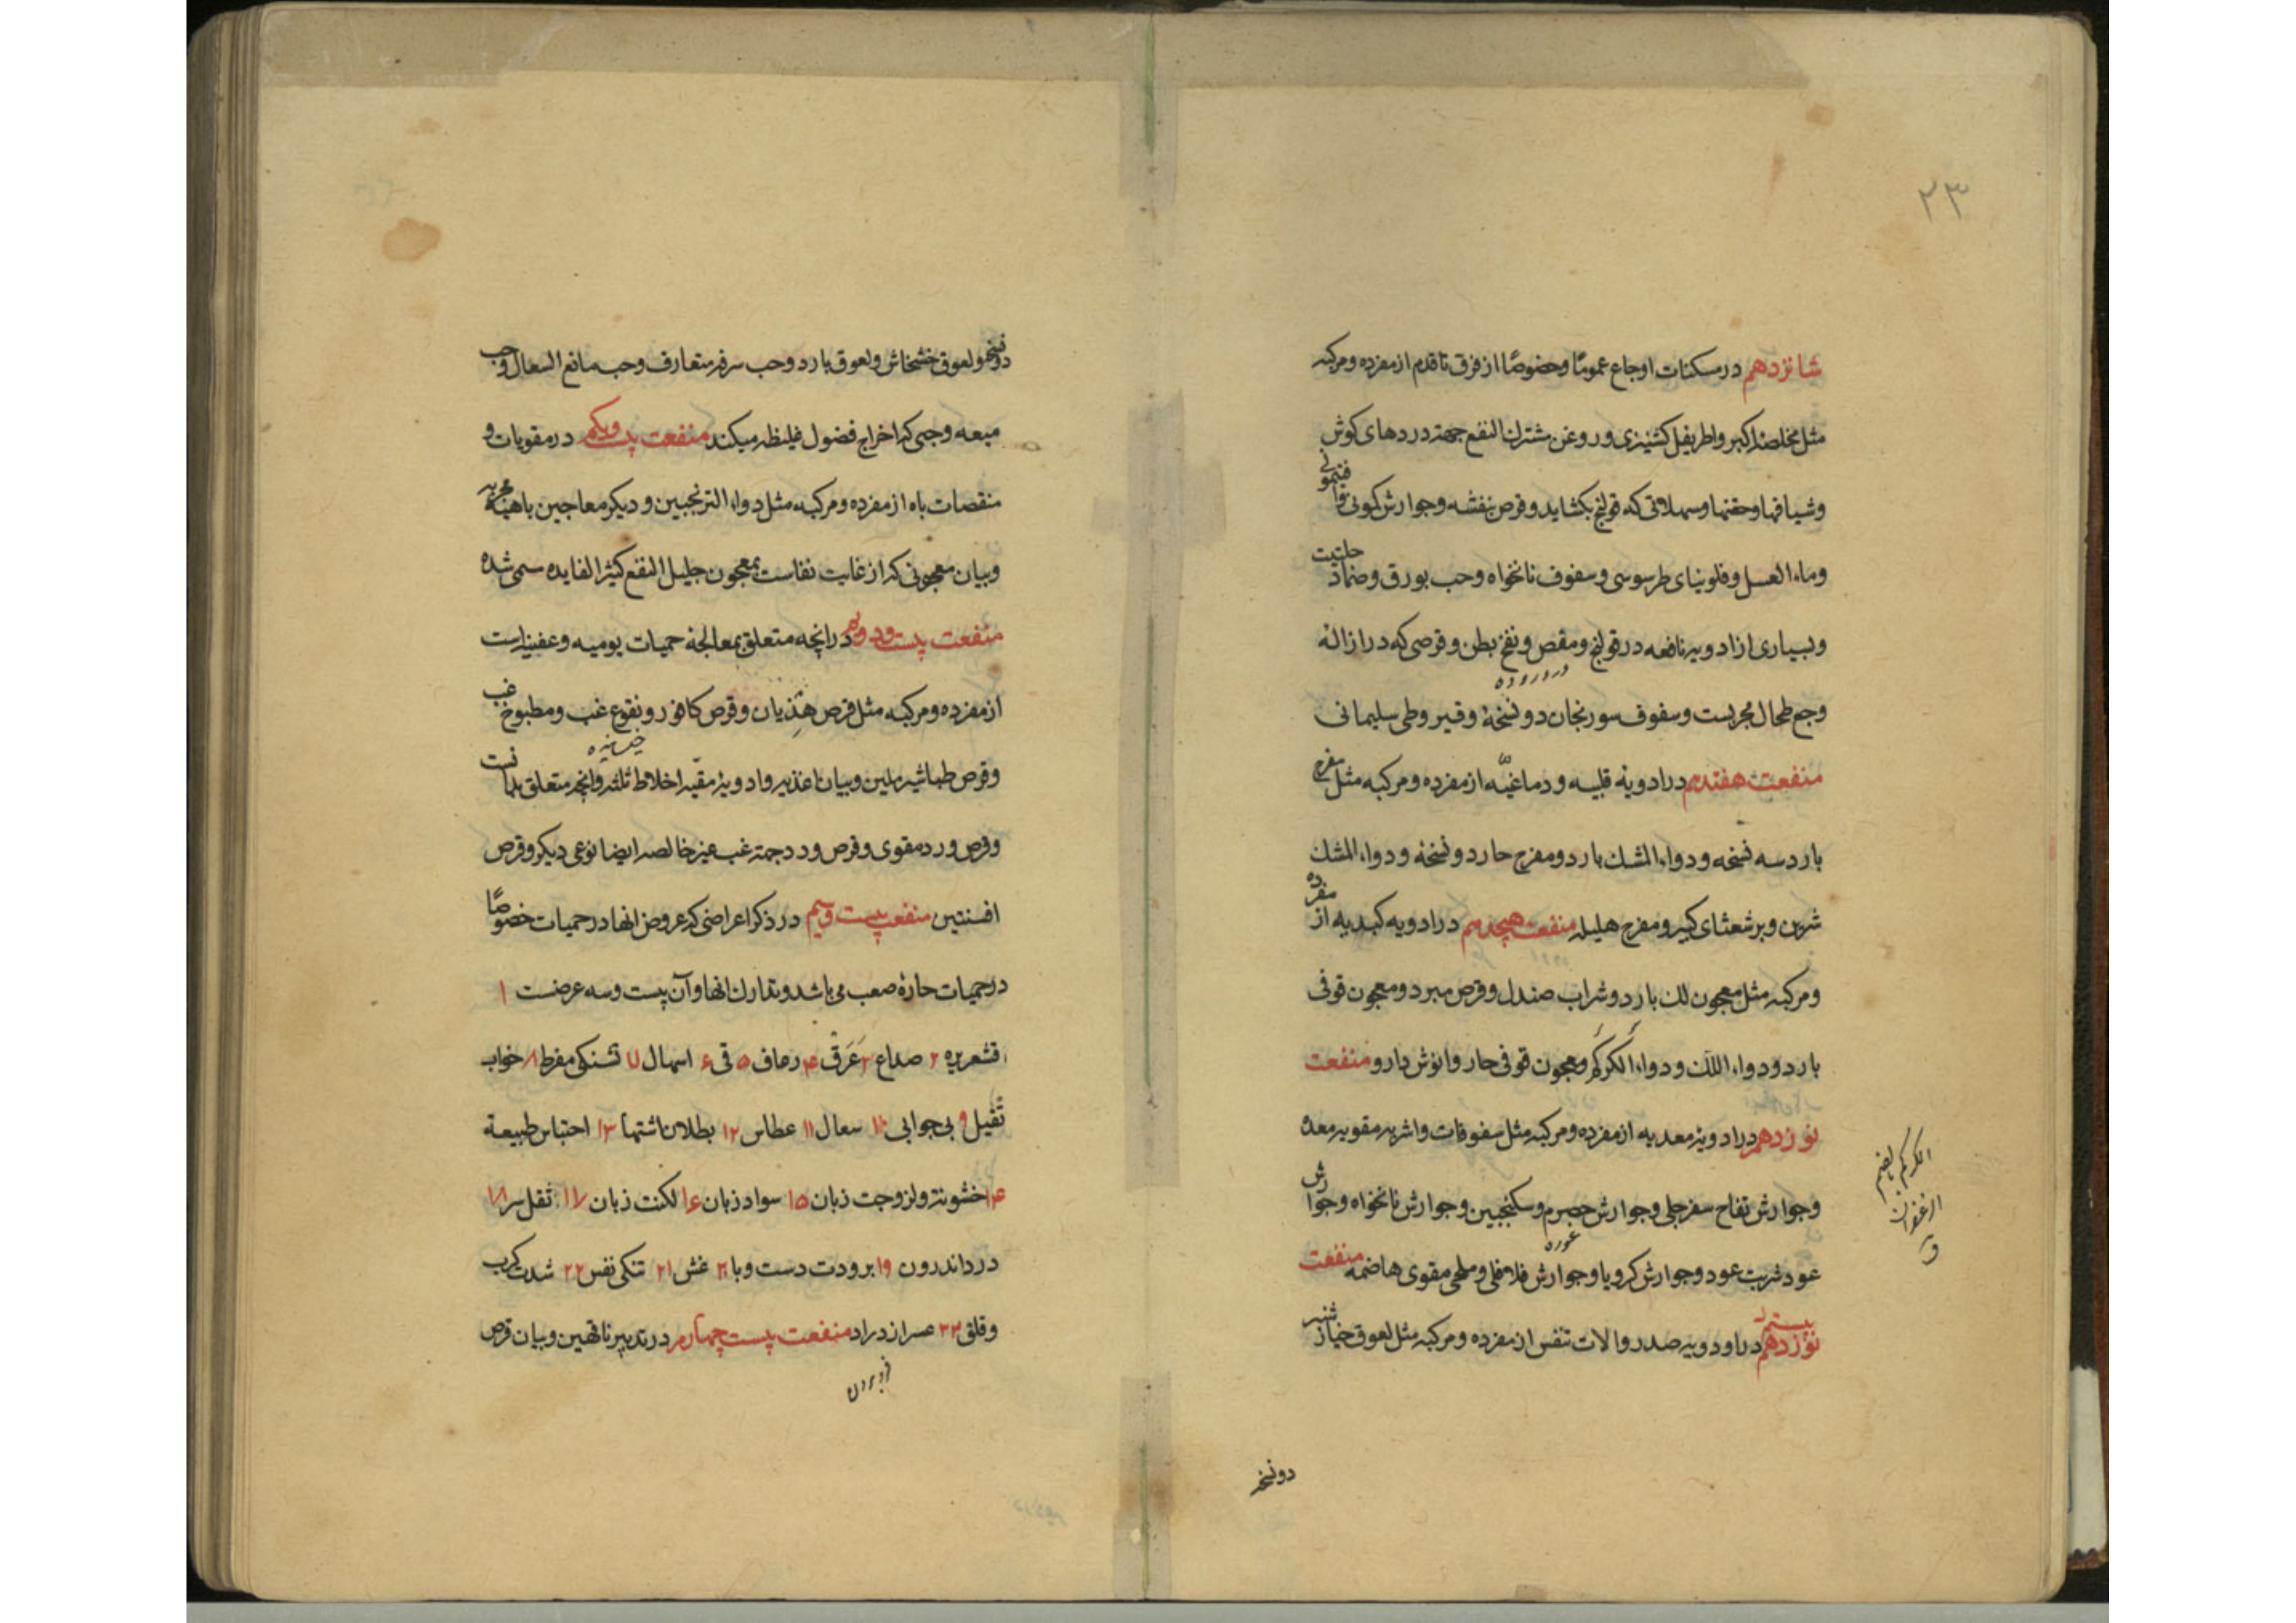 ۲۳
شانزدهم در مسکنات اوجاع عموما وخصوصا از فرق تا قدم از مفرده ومرکبه
مثل مخلصه اکبر واطریفل کشنیزی وروغن مشترک النفع جهة دردهای کوش
وشیافها وحقنها ومسهلاتی که قولنج بکشاید وقرص بنفشه وجوارش کمونی
وماء العسل وفلونیای طرسوسی وسفوف نانخواه وحب بورق وضماد حلتیت
وبسیاری از ادویه نافعه در قولنج ومغص ونفخ بطن وقرصی که در ازاله
وجع طحال مجربست وسفوف سورنجان دو نسخه وقیروطی سلیمانی
منفعت هفتدهم در ادویه قلبیه ودماغیه از مفرده ومرکبه مثل مفرح
بارد سه نسخه ودواء المشک بارد ومفرح حار دو نسخه ودواء المشک
شیرین وبرشعثای کبیر ومفرح هلیله منفعت هیجدهم در ادویه کبدیه از مفرده
ومرکبه مثل معجون لک بارد وشراب صندل وقرص مبرد ومعجون قوفی
بارد ودواء اللک ودواء الکرکم ومعجون قوفی حار وانوش دارو منفعت
نوزدهم در ادویه معدیه از مفرده ومرکبه مثل سفوفات واشربه مقویه معده
وجوارش تفاح سفرجلی وجوارش حصرم وسکنجبین وجوارش نانخواه وجوارش
غوره
عود شربت عود وجوارش کرویا وجوارش فلافلی وملحی مقوی هاضمه منفعت
بیستم نوزدهم در اودویه صدر والات تنفس از مفرده ومرکبه مثل لعوق خیار شنبر
الکرکم بالضم
الزعفران
ق
دو نسخه
دو نسخه ولعوق خشخاش ولعوق بارد وحب سرفه متعارف وحب مانع السعال وحب
میعه وحبی که اخراج فضول غلیظه میکند منفعت بیست ویکم در مقویات و
منقصات باه از مفرده ومرکبه مثل دواء الترنجبین ودیکر معاجین باهیه مجربه
وبیان معجونی که از غایت نفاست بمعجون جلیل النفع کثیر الفایده مسمی شده
منفعت بیست ودویم در انچه متعلق بمعالجه حمیات یومیه وعفنیه است
از مفرده ومرکبه مثل قرص هذیان وقرص کافور ونقوع غب ومطبوخ غب
خیسانیده
وقرص طباشیر ملین وبیان اغذیه وادویه منقیه اخلاط ثلثه وانچه متعلق بدانست
وقرص ورد مقوی وقرص ورد جهة غب غیر خالصه ایضا نوعی دیکر وقرص
افسنتین منفعت بیست وسیم در ذکر اعراضی که عروض انها در حمیات خصوصا
در حمیات حاره صعب می باشد وتدارک انها وآن بیست وسه عرضست ۱
قشعریره ۲ صداع ۳ عرق ۴ رعاف ۵ قی ۶ اسهال ۷ تشنکی مفرط ۸ خواب
ثقیل ۹ بی جوابی ۱۰ سعال ۱۱ عطاس ۱۲ بطلان اشتها ۱۳ احتباس طبیعة
۱۴ خشونة ولزوجت زبان ۱۵ سواد زبان ۱۶ لکنت زبان ۱۷ ثقل سر ۱۸
درد اندرون ۱۹ برودت دست وپا ۲۰ غش ۲۱ تنکی نفس ۲۲ شدت کرب
وقلق ۲۳ عسر ازدراد منفعت بیست چهارم در تدبیر ناقهین وبیان قرص
فرو بردن